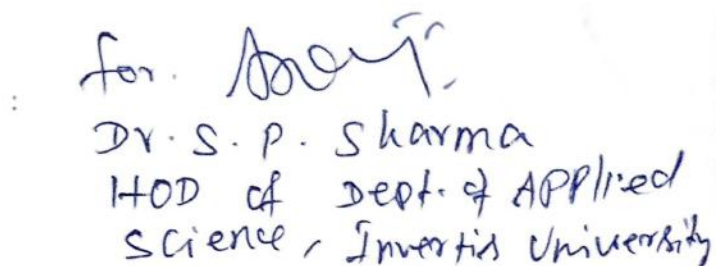 for.
Dr. S. P. Sharma
HOD of Dept. of Applied
Science, Invertis University